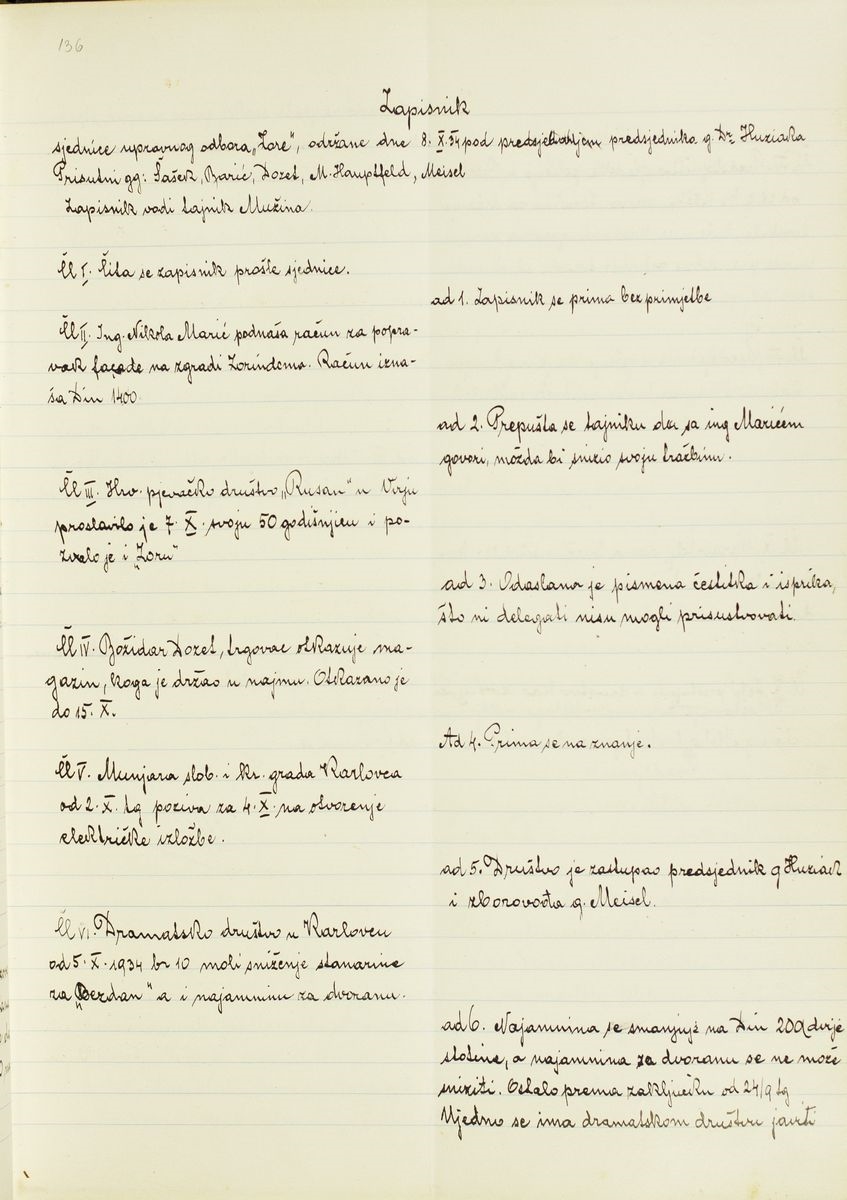 136
Zapisnik
sjednice upravnog odbora „Zore", održane dne 8. X. 34 pod predsjedanjem predsjednika g. Dr. Huziaka
Prisutni gg: Šašek, Barić, Dozet, M. Hauptfeld, Meisel
Zapisnik vodi tajnik Mužina.
Čl I. Čita se zapisnik prošle sjednice.
ad 1. Zapisnik se prima bez primjetbe
Čl II. Ing. Nikola Marić podnaša račun za popra-
vak façade na zgradi Zorindoma. Račun izna-
ša Din 1400.
ad 2. Prepušta se tajniku da sa ing Marićem
govori, možda bi snizio svoju tražbinu.
Čl III. Hrv. pjevačko društvo „Rusan" u Virju
proslavilo je 7. X. svoju 50 godišnjicu i po-
zvalo je i „Zoru"
ad 3. Odaslana je pismena čestitka i isprika,
što ni delegati nisu mogli prisustvovati.
Čl IV. Božidar Dozet, trgovac otkazuje ma-
gazin, koga je držao u najmu. Otkazano je
do 15. X.
Ad 4. Prima se na znanje.
Čl V. Munjara slob. i kr. grada Karlovca
od 2. X. tg poziva za 4. X. na otvorenje
električke izložbe.
ad 5. Društvo je zastupao predsjednik g Huziak
i zborovođa g. Meisel.
Čl VI. Dramatsko društvo u Karlovcu
od 5. X. 1934 br 10 moli sniženje stanarine
za „Bezdan" a i najamninu za dvoranu.
ad 6. Najamnina se smanjuje na Din 200 dvije
stotine, a najamnina za dvoranu se ne može
sniziti. Ostalo prema zaključku od 24/9 tg
Ujedno se ima dramatskom društvu javiti